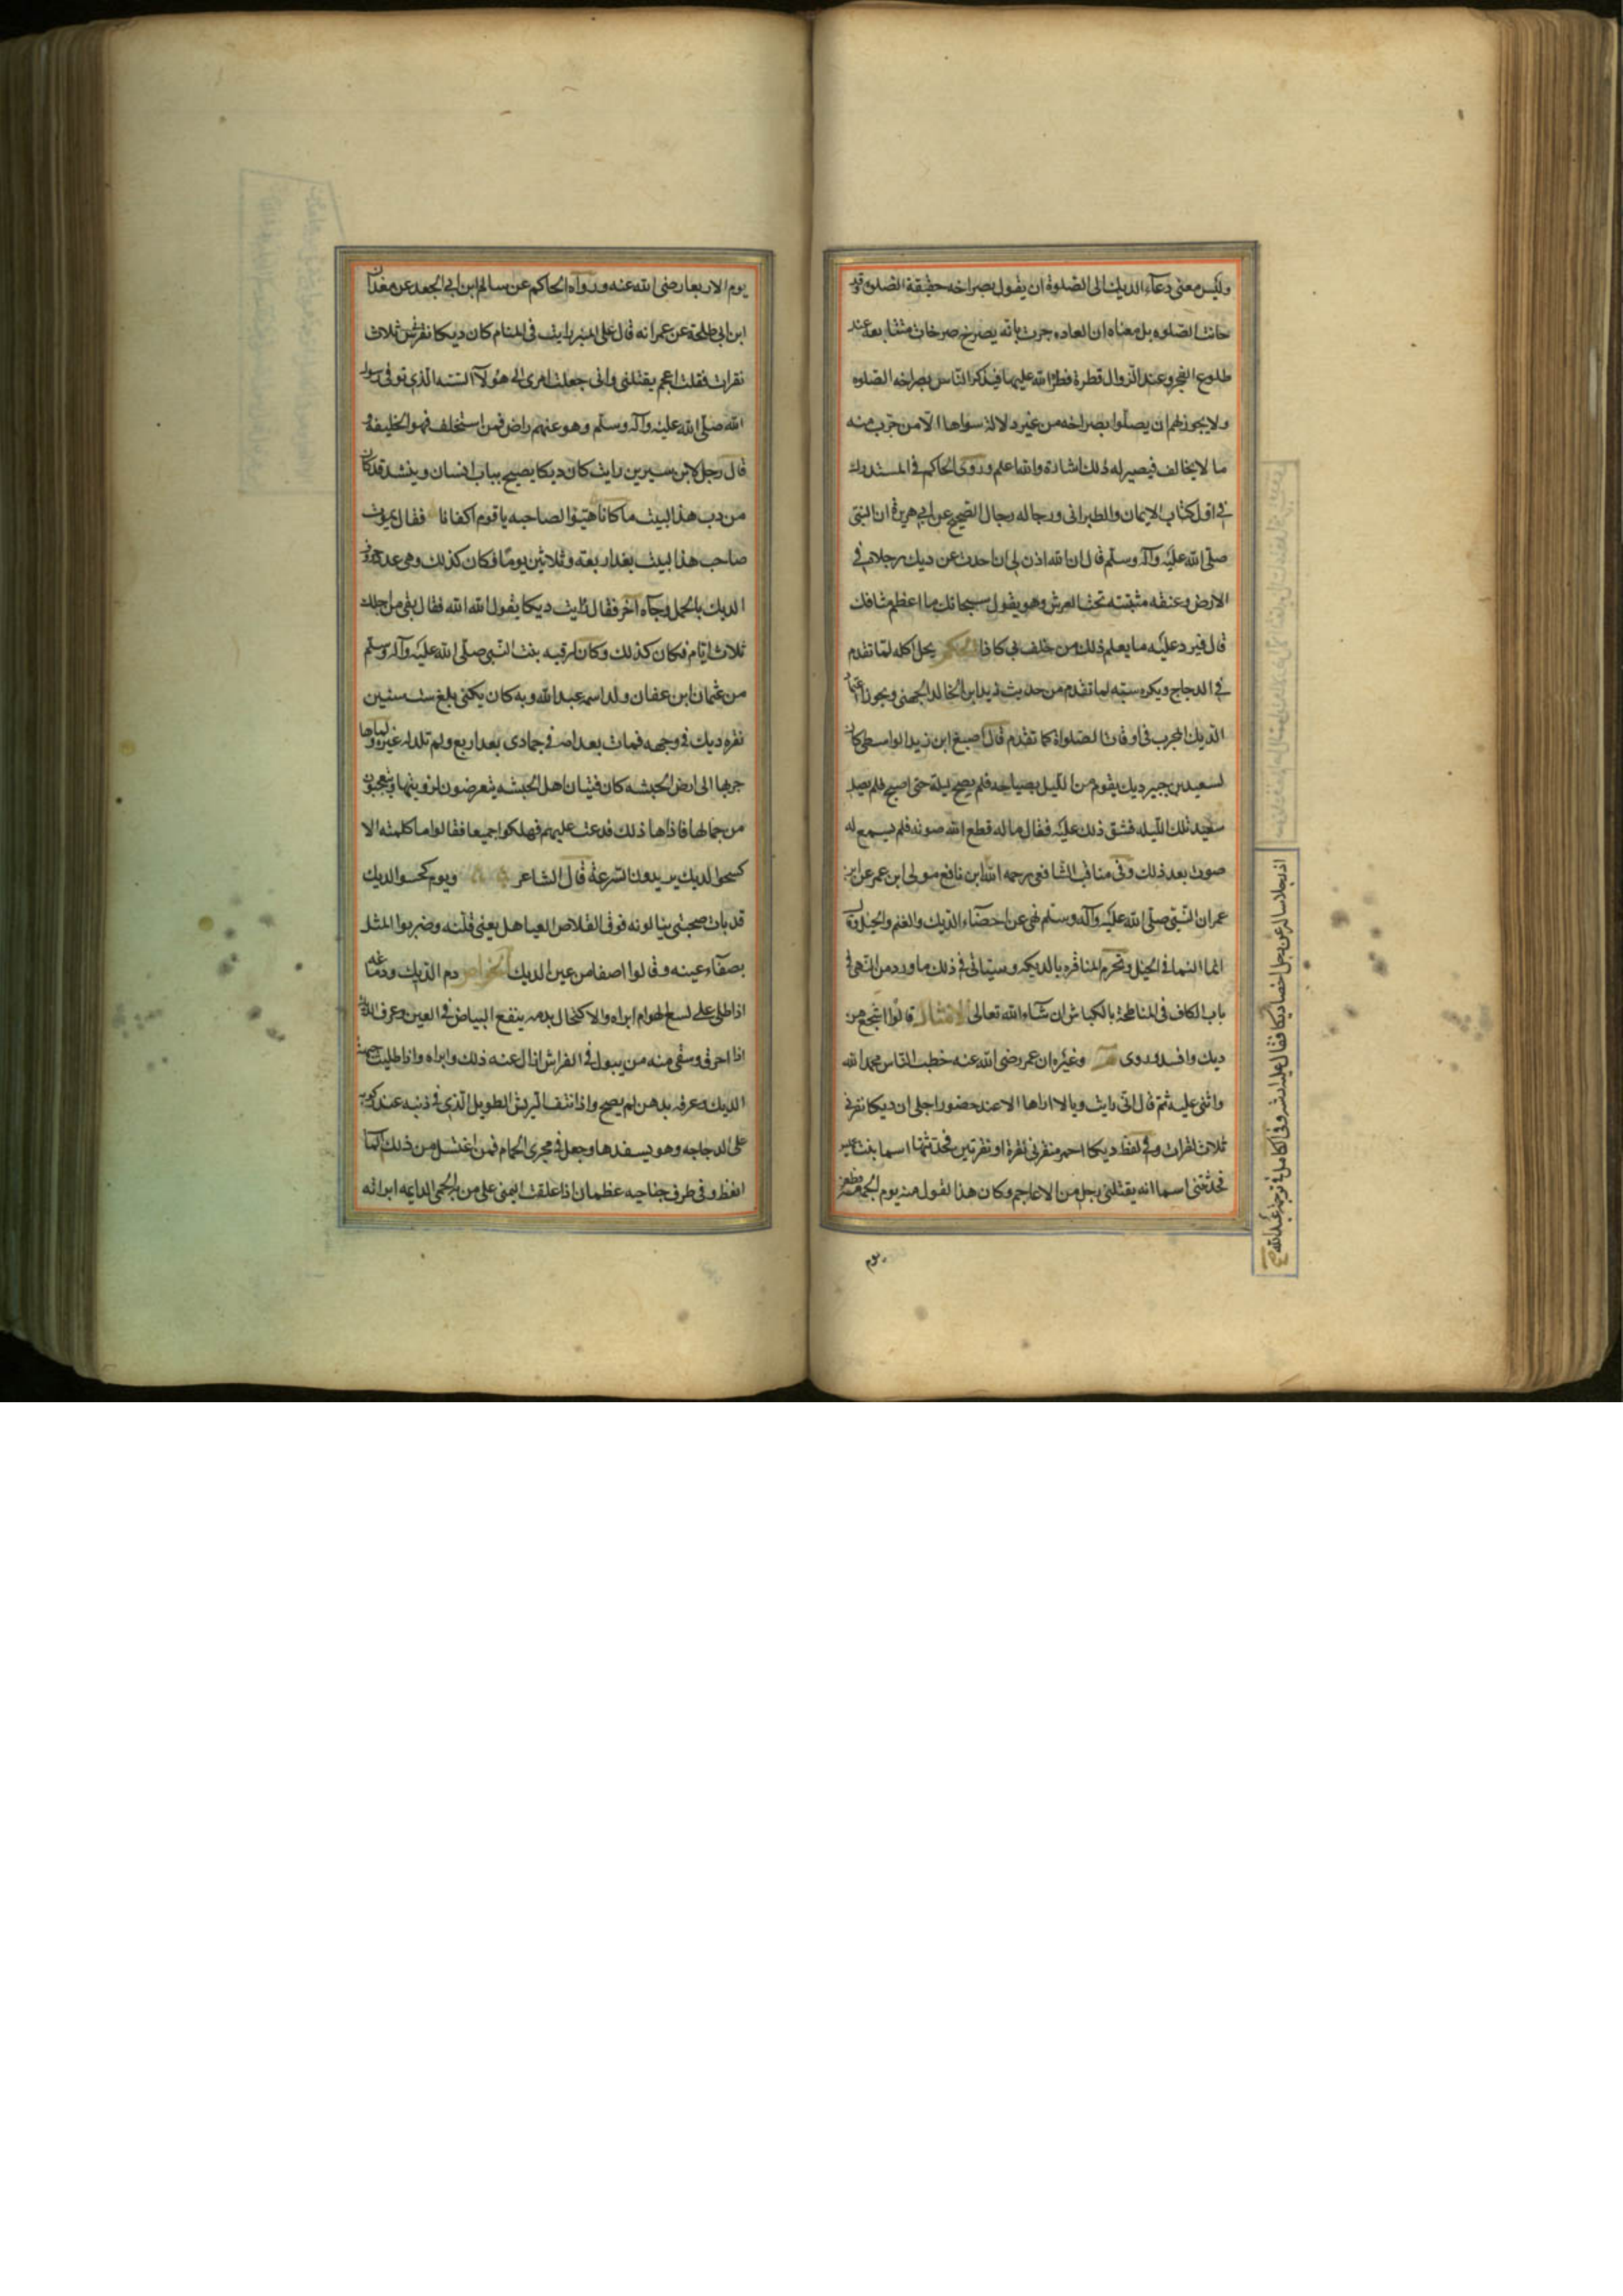 وليس معنى دعاء الديك الى الصلوة ان يقول بصراخه حقيقة الصلوة قد
حانت الصلوه بل معناه ان العاده جرت بانه يصرخ صرخات متتابعه عند
طلوع الفجر وعند الزوال فطرة فطره الله عليها فيذكر الناس بصراخه الصلوه
ولا يجوز لهم ان يصلوا بصراخه من غير دلالة سواها الا من جرب منه
ما لا يخالف فيصير له ذلك اشارة والله اعلم وروى الحاكم فى المستدرك
فى اول كتاب الايمان والطبرانى ورجاله رجال الصحيح عن ابى هريرة ان النبى
صلى الله عليه وآله وسلم قال ان الله اذن لى ان احدث عن ديك رجلاه فى
الارض وعنقه مثبته تحت العرش وهو يقول سبحانك ما اعظم شانك
قال فيرد عليه ما يعلم ذلك من حلف بى كاذبا الحكم يحل اكله لما تقدم
فى الدجاج ويكره سبه لما تقدم من حديث زيد ابن الخالد الجهنى ويجوز اعتماد
الديك المجرب فى اوقات الصلواة كما تقدم قال اصبغ ابن زيد الواسطى كان
لسعيد بن جبير ديك يقوم من الليل بصياحه فلم يصح ليلة حتى اصبح فلم يصل
سعيد تلك الليله فشق ذلك عليه فقال ماله قطع الله صوته فلم يسمع له
صوت بعد ذلك وفى مناقب الشافعى رحمه الله ابن نافع مولى ابن عمر عن ابن
عمر ان النبى صلى الله عليه وآله وسلم نهى عن اخصاء الديك والغنم والخيل وقال
انما النما فى الخيل وتحرم المناقره بالديكه وسياتى فى ذلك ما ورد من النهى فى
باب الكاف فى المناطحة بالكباش ان شاء الله تعالى الامثال قالوا اشجع من
ديك وافسد وروى وغيره ان عمر رضى الله عنه خطب الناس فحمد الله
واثنى عليه ثم قال انى رايت رويا لا اراها الا عند حضور اجلى ان ديكا نقرنى
ثلاث نقرات وفى لفظ ديكا احمر نقرنى نقرة او نقرتين فحدثتها اسما بنت عميس
فحدثتنى اسما انه يقتلنى رجل من الاعاجم وكان هذا القول منه يوم الجمعه فطعن
يوم
ان رجلا سال عن رجل اخصا ديكا فقال عليه وفى الكامل فى ترجمة عبدالله
يوم الاربعا رضى الله عنه ورواه الحاكم عن سالم ابن ابى الجعد عن معدان
ابن ابى طلحة عن عمر انه قال على المنبر رايت فى المنام كان ديكا نقرنى ثلاث
نقرات فقلت اعجم يقتلنى وانى جعلت امرى الى هؤلاء الستة الذى توفى رسول
الله صلى الله عليه وآله وسلم وهو عنهم راض فمن استخلف فهو الخليفة
قال رجل لابن سيرين رايت كان ديكا يصيح بباب انسان وينشد قد كان
من رب هذا البيت ما كانا هيئوا لصاحبه يا قوم اكفانا فقال يموت
صاحب هذا البيت بعد اربعة وثلاثين يوما فكان كذلك وهى عدد حروف
الديك بالجمل وجاه آخر فقال رايت ديكا يقول الله الله فقال بقى من اجلك
ثلاث ايام فكان كذلك وكان لرقيه بنت النبى صلى الله عليه وآله وسلم
من عثمان ابن عفان ولد اسمه عبد الله وبه كان يكنى بلغ ست سنين
نقره ديك فى وجهه فمات بعد امه فى جمادى بعد اربع ولم تلد له غيره ولما هاجر
بها الى ارض الحبشه كان فتيان اهل الحبشه يتعرضون لرويتها ويتعجبون
من جمالها فاذاها ذلك فدعت عليهم فهلكوا جميعا فقالوا ما كلمته الا
كحسو الديك يريدون السرعة قال الشاعر ويوم كحسو الديك
قد بات صحبتى ينالونه فوق القلاص العياهل يعنى قلته وضربوا المثل
بصفاء عينه وقالوا اصفا من عين الديك الخواص دم الديك ودماغه
اذا طلى على لسع الهوام ابراه والاكتحال بدمه ينفع البياض فى العين وعرف الديك
اذا احرق وسقى منه من يبول فى الفراش ازال عنه ذلك وابراه واذا طليت جبهة
الديك وعرفه بدهن لم يصح واذا نتف الريش الطويل الذى فى ذنبه عند ركوبه
على الدجاجه وهو يسفدها وجعل فى مجرى الحمام فمن اغتسل من ذلك الما
انعظ وفى طرف جناحيه عظمان اذا علقت اليمنى على من به الحمى الدايمه ابراته